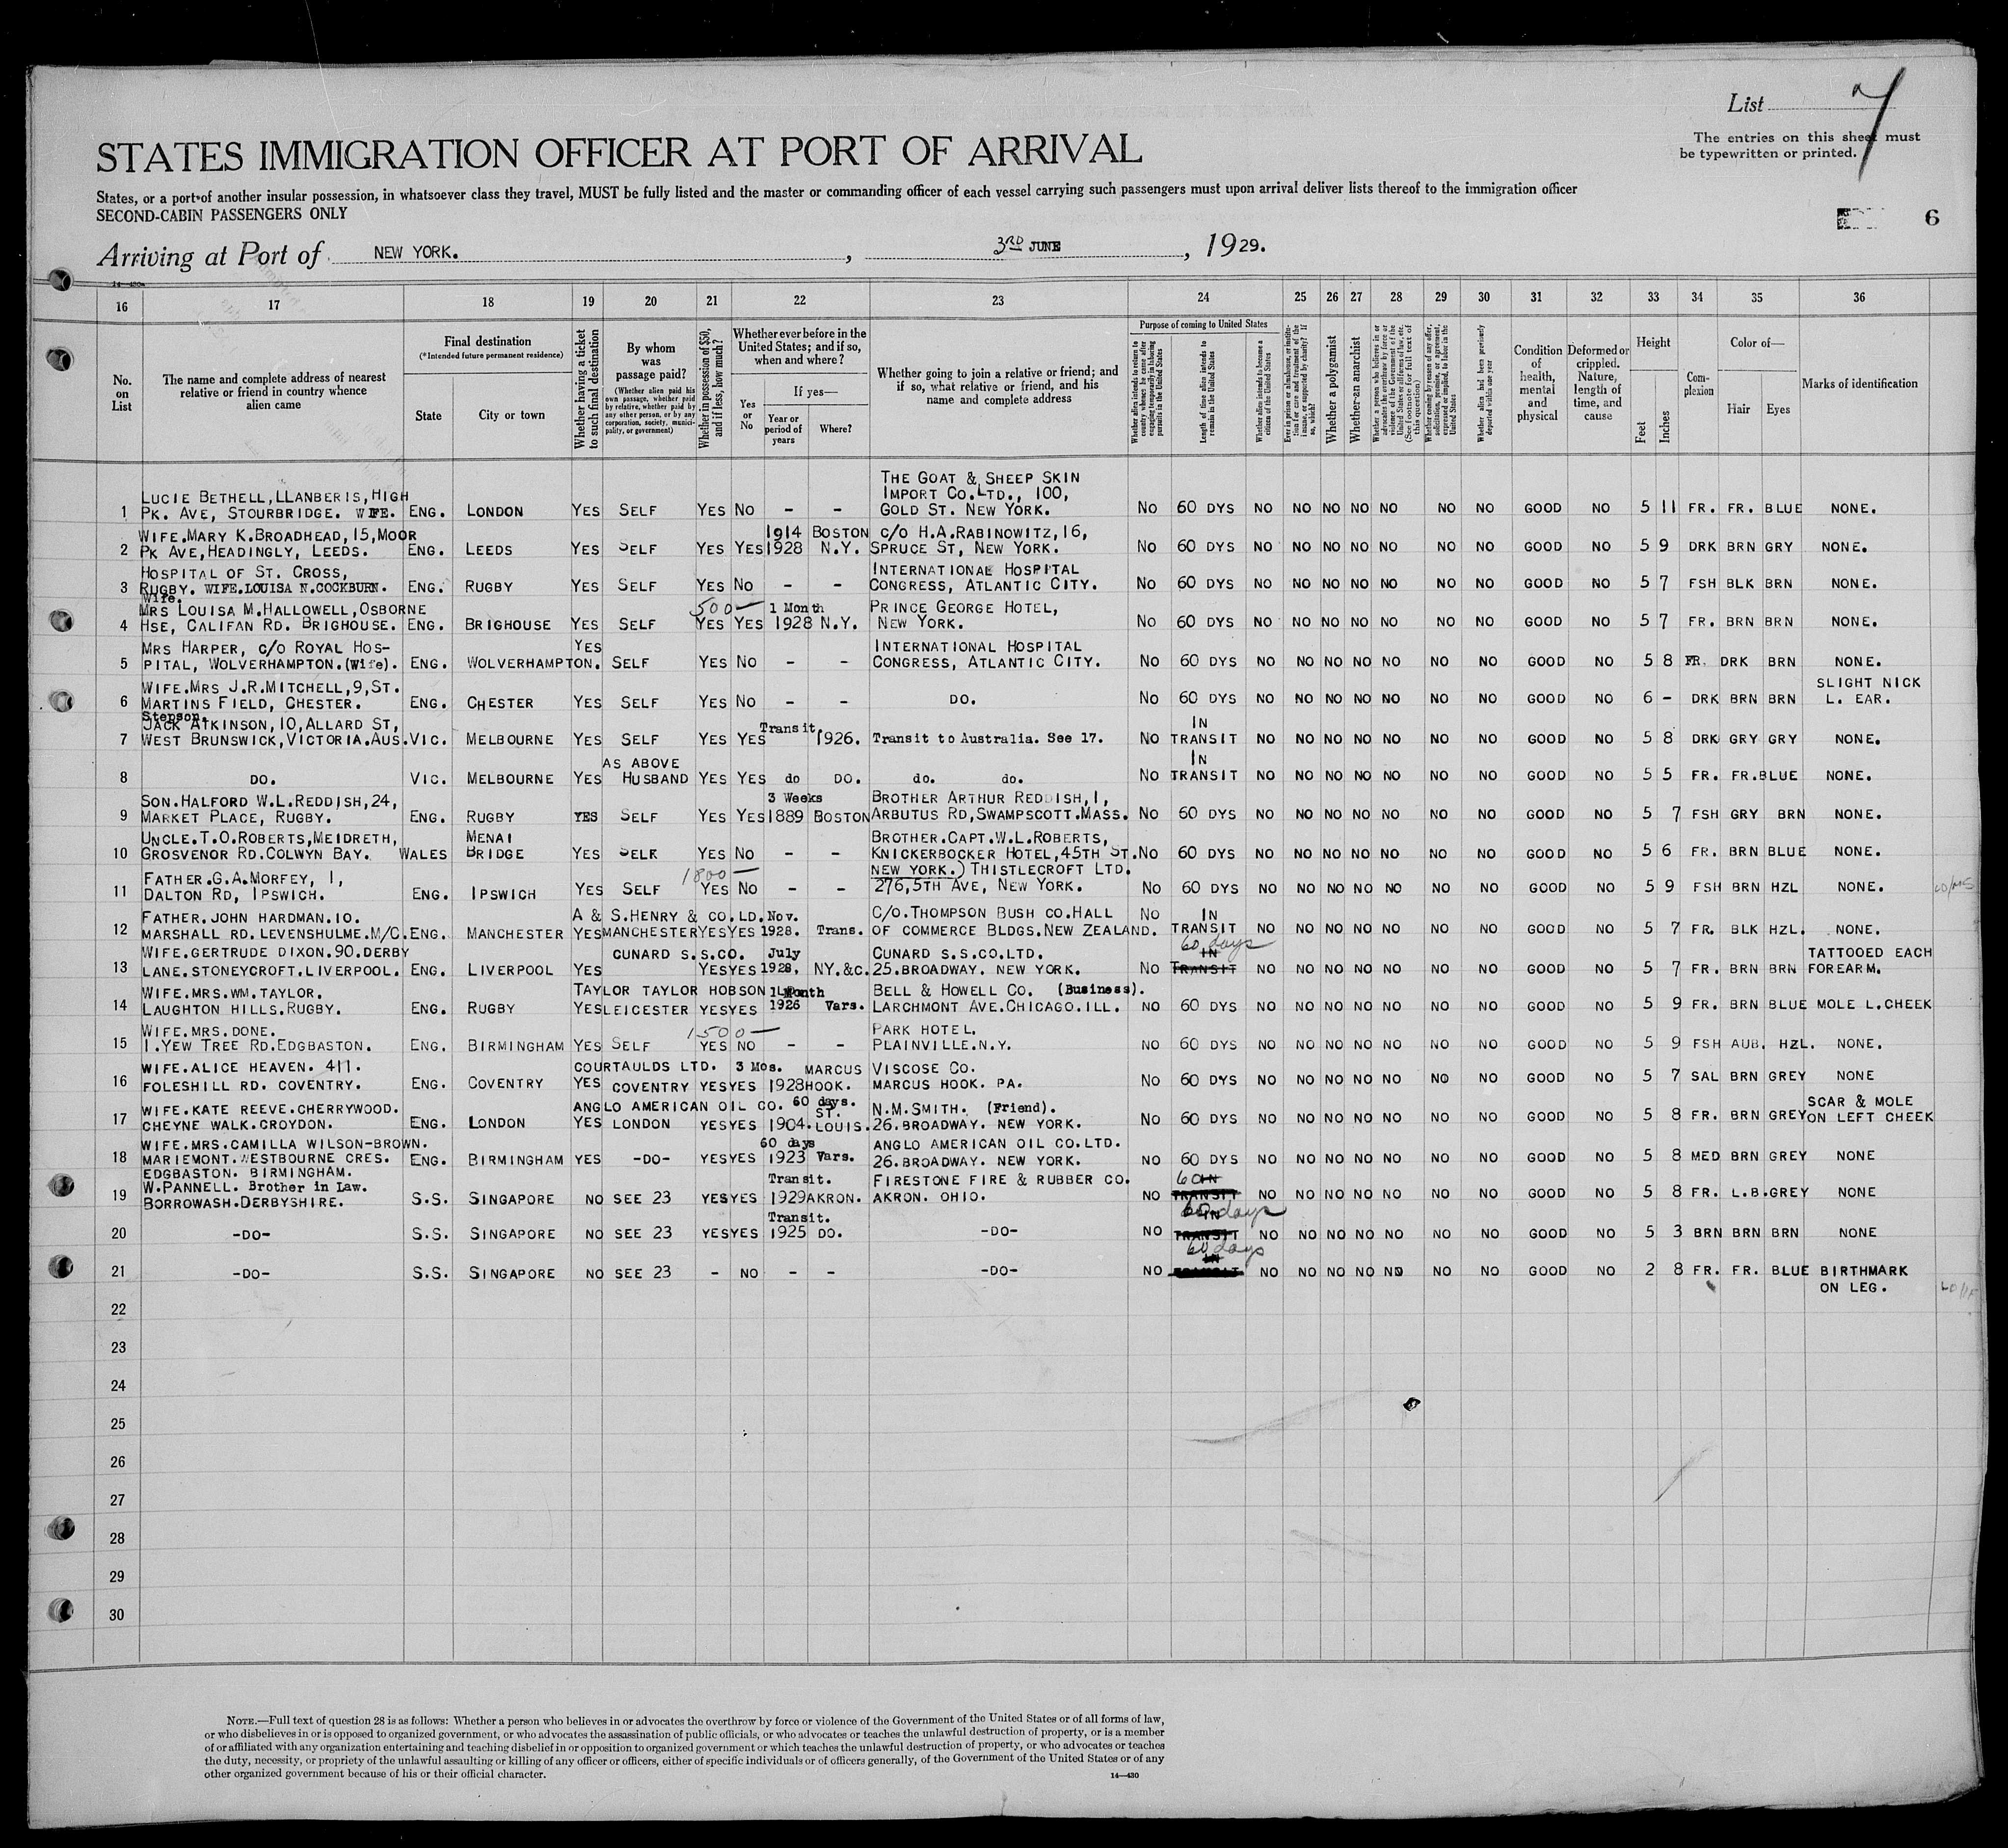 List 7
The entries on this sheet must
be typewritten or printed.
STATES IMMIGRATION OFFICER AT PORT OF ARRIVAL
States, or a port of another insular possession, in whatsoever class they travel, MUST be fully listed and the master or commanding officer of each vessel carrying such passengers must upon arrival deliver lists thereof to the immigration officer
SECOND-CABIN PASSENGERS ONLY
6
Arriving at Port of NEW YORK. , 3RD JUNE , 1929.
16 17 18 19 20 21 22 23 24 25 26 27 28 29 30 31 32 33 34 35 36
No. on List
The name and complete address of nearest relative or friend in country whence alien came
Final destination
(*Intended future permanent residence)
State
City or town
Whether having a ticket to such final destination
By whom was passage paid?
(Whether alien paid his own passage, whether paid by relative, whether paid by any other person, or by any corporation, society, municipality, or government)
Whether in possession of $50, and if less, how much?
Whether ever before in the United States; and if so, when and where?
Yes or No
If yes—
Year or period of years
Where?
Whether going to join a relative or friend; and if so, what relative or friend, and his name and complete address
Purpose of coming to United States
Whether alien intends to return to country whence he came after engaging temporarily in laboring pursuits in the United States
Length of time alien intends to remain in the United States
Whether alien intends to become a citizen of the United States
Ever in prison or almshouse, or institution for care and treatment of the insane, or supported by charity? If so, which?
Whether a polygamist
Whether an anarchist
Whether a person who believes in or advocates the overthrow by force or violence of the Government of the United States or all forms of law, etc. (See footnote for full text of this question)
Whether coming by reason of any offer, solicitation, promise, or agreement, expressed or implied, to labor in the United States
Whether alien had been previously deported within one year
Condition of health, mental and physical
Deformed or crippled. Nature, length of time, and cause
Height
Feet
Inches
Complexion
Color of—
Hair
Eyes
Marks of identification
THE GOAT & SHEEP SKIN
LUCIE BETHELL, LLANBERIS, HIGH IMPORT CO.LTD., 100,
1 PK. AVE, STOURBRIDGE. WIFE. ENG. LONDON YES SELF YES NO - - GOLD ST. NEW YORK. NO 60 DYS NO NO NO NO NO NO NO GOOD NO 5 11 FR. FR. BLUE NONE.
WIFE.MARY K.BROADHEAD, 15, MOOR 1914 BOSTON C/O H.A.RABINOWITZ, 16,
2 PK AVE, HEADINGLY, LEEDS. ENG. LEEDS YES SELF YES YES 1928 N.Y. SPRUCE ST, NEW YORK. NO 60 DYS NO NO NO NO NO NO NO GOOD NO 5 9 DRK BRN GRY NONE.
HOSPITAL OF ST. CROSS, INTERNATIONAL HOSPITAL
3 RUGBY. WIFE.LOUISA N.COCKBURN. ENG. RUGBY YES SELF YES NO - - CONGRESS, ATLANTIC CITY. NO 60 DYS NO NO NO NO NO NO NO GOOD NO 5 7 FSH BLK BRN NONE.
Wife.
MRS LOUISA M.HALLOWELL, OSBORNE 500— 1 Month PRINCE GEORGE HOTEL,
4 HSE, CALIFAN RD. BRIGHOUSE. ENG. BRIGHOUSE YES SELF YES YES 1928 N.Y. NEW YORK. NO 60 DYS NO NO NO NO NO NO NO GOOD NO 5 7 FR. BRN BRN NONE.
MRS HARPER, C/O ROYAL HOS- YES INTERNATIONAL HOSPITAL
5 PITAL, WOLVERHAMPTON.(Wife). ENG. WOLVERHAMPTON. SELF YES NO - - CONGRESS, ATLANTIC CITY. NO 60 DYS NO NO NO NO NO NO NO GOOD NO 5 8 FR. DRK BRN NONE.
WIFE.MRS J.R.MITCHELL, 9, ST. SLIGHT NICK
6 MARTINS FIELD, CHESTER. ENG. CHESTER YES SELF YES NO - - DO. NO 60 DYS NO NO NO NO NO NO NO GOOD NO 6 - DRK BRN BRN L. EAR.
Stepson.
JACK ATKINSON, 10, ALLARD ST, Transit. IN
7 WEST BRUNSWICK, VICTORIA.AUS. VIC. MELBOURNE YES SELF YES YES 1926. Transit to Australia. See 17. NO TRANSIT NO NO NO NO NO NO NO GOOD NO 5 8 DRK GRY GRY NONE.
AS ABOVE IN
8 DO. VIC. MELBOURNE YES HUSBAND YES YES do DO. do. do. NO TRANSIT NO NO NO NO NO NO NO GOOD NO 5 5 FR. FR. BLUE NONE.
SON.HALFORD W.L.REDDISH, 24, 3 Weeks BROTHER ARTHUR REDDISH, 1,
9 MARKET PLACE, RUGBY. ENG. RUGBY YES SELF YES YES 1889 BOSTON ARBUTUS RD, SWAMPSCOTT.MASS. NO 60 DYS NO NO NO NO NO NO NO GOOD NO 5 7 FSH GRY BRN NONE.
UNCLE.T.O.ROBERTS, MEIDRETH, MENAI BROTHER.CAPT.W.L.ROBERTS,
10 GROSVENOR RD.COLWYN BAY. WALES BRIDGE YES SELK YES NO - - KNICKERBOCKER HOTEL, 45TH ST. NO 60 DYS NO NO NO NO NO NO NO GOOD NO 5 6 FR. BRN BLUE NONE.
FATHER.G.A.MORFEY, 1, 1800— NEW YORK.) THISTLECROFT LTD.
11 DALTON RD, IPSWICH. ENG. IPSWICH YES SELF YES NO - - 276, 5TH AVE, NEW YORK. NO 60 DYS NO NO NO NO NO NO NO GOOD NO 5 9 FSH BRN HZL NONE.
FATHER.JOHN HARDMAN.10. A & S.HENRY & CO.LD. Nov. C/O.THOMPSON BUSH CO.HALL NO IN
12 MARSHALL RD.LEVENSHULME.M/C. ENG. MANCHESTER YES MANCHESTER YES YES 1928. Trans. OF COMMERCE BLDGS.NEW ZEALAND. TRANSIT NO NO NO NO NO NO NO GOOD NO 5 7 FR. BLK HZL. NONE.
WIFE.GERTRUDE DIXON.90.DERBY CUNARD S.S.CO. July CUNARD S.S.CO.LTD. 60 days IN TATTOOED EACH
13 LANE.STONEYCROFT.LIVERPOOL. ENG. LIVERPOOL YES YES YES 1928, NY.&C. 25.BROADWAY. NEW YORK. NO TRANSIT NO NO NO NO NO NO NO GOOD NO 5 7 FR. BRN BRN FOREARM.
WIFE.MRS.WM.TAYLOR. TAYLOR TAYLOR HOBSON 1 Month BELL & HOWELL CO. (Business).
14 LAUGHTON HILLS.RUGBY. ENG. RUGBY YES LEICESTER YES YES 1926 Vars. LARCHMONT AVE.CHICAGO.ILL. NO 60 DYS NO NO NO NO NO NO NO GOOD NO 5 9 FR. BRN BLUE MOLE L.CHEEK
WIFE.MRS.DONE. 1500— PARK HOTEL.
15 1.YEW TREE RD.EDGBASTON. ENG. BIRMINGHAM YES SELF YES NO - - PLAINVILLE.N.Y. NO 60 DYS NO NO NO NO NO NO NO GOOD NO 5 9 FSH AUB. HZL. NONE.
WIFE.ALICE HEAVEN. 411. COURTAULDS LTD. 3 Mos. MARCUS VISCOSE CO.
16 FOLESHILL RD. COVENTRY. ENG. COVENTRY YES COVENTRY YES YES 1928 HOOK. MARCUS HOOK. PA. NO 60 DYS NO NO NO NO NO NO NO GOOD NO 5 7 SAL BRN GREY NONE
WIFE.KATE REEVE.CHERRYWOOD. ANGLO AMERICAN OIL CO. 60 days. ST. N.M.SMITH. (Friend). SCAR & MOLE
17 CHEYNE WALK.CROYDON. ENG. LONDON YES LONDON YES YES 1904. LOUIS. 26.BROADWAY. NEW YORK. NO 60 DYS NO NO NO NO NO NO NO GOOD NO 5 8 FR. BRN GREY ON LEFT CHEEK
WIFE.MRS.CAMILLA WILSON-BROWN. 60 days ANGLO AMERICAN OIL CO.LTD.
18 MARIEMONT.WESTBOURNE CRES. ENG. BIRMINGHAM YES -DO- YES YES 1923 Vars. 26.BROADWAY. NEW YORK. NO 60 DYS NO NO NO NO NO NO NO GOOD NO 5 8 MED BRN GREY NONE
EDGBASTON. BIRMINGHAM.
W.PANNELL. Brother in Law. Transit. FIRESTONE FIRE & RUBBER CO. 60 IN
19 BORROWASH.DERBYSHIRE. S.S. SINGAPORE NO SEE 23 YES YES 1929 AKRON. AKRON. OHIO. NO TRANSIT NO NO NO NO NO NO NO GOOD NO 5 8 FR. L.B. GREY NONE
Transit. 60 days IN
20 -DO- S.S. SINGAPORE NO SEE 23 YES YES 1925 DO. -DO- NO TRANSIT NO NO NO NO NO NO NO GOOD NO 5 3 BRN BRN BRN NONE
60 days IN
21 -DO- S.S. SINGAPORE NO SEE 23 - NO - - -DO- NO NO NO NO NO NO NO NO GOOD NO 2 8 FR. FR. BLUE BIRTHMARK
ON LEG.
22
23
24
25
26
27
28
29
30
NOTE.—Full text of question 28 is as follows: Whether a person who believes in or advocates the overthrow by force or violence of the Government of the United States or of all forms of law,
or who disbelieves in or is opposed to organized government, or who advocates the assassination of public officials, or who advocates or teaches the unlawful destruction of property, or is a member
of or affiliated with any organization entertaining and teaching disbelief in or opposition to organized government or which teaches the unlawful destruction of property, or who advocates or teaches
the duty, necessity, or propriety of the unlawful assaulting or killing of any officer or officers, either of specific individuals or of officers generally, of the Government of the United States or of any
other organized government because of his or their official character.
14—430